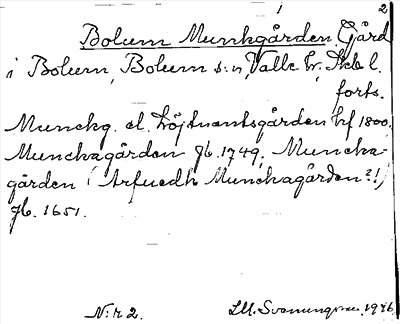 2
Bolum Munkgården Gård
i Bolum, Bolum s:n, Valle hr, Skb l.
forts.
Munckg. el. Löjtnantsgården hf 1800.
Munckagården Jb. 1749; Muncka-
gården (Arfuedh Munckagården?!)
Jb. 1651.
N:r 2. 1946